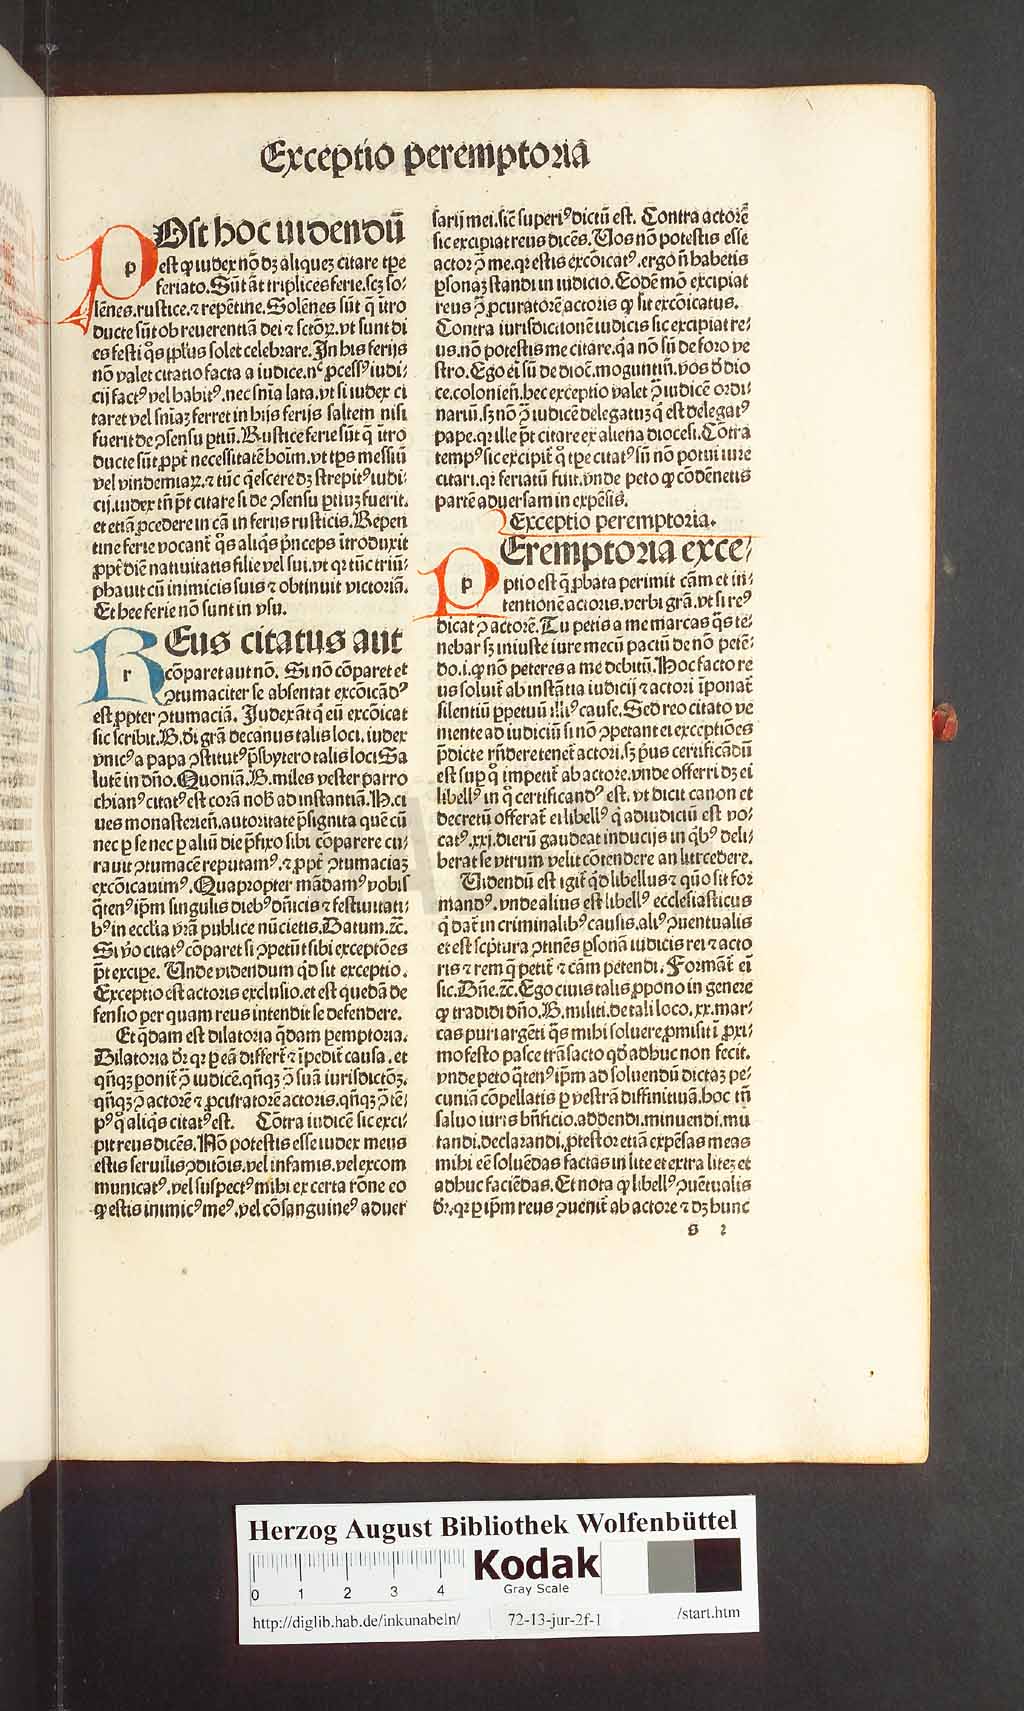 Exceptio peremptoriā
POst hoc uidendū
est ꝙ iudex nō dꝫ aliquez citare tꝑe
feriato. Sūt āt triplices ferie. scꝫ so⸗
lēnes. rustice. ⁊ repētine. Solēnes sūt q̄ ītro
ducte sūt ob reuerentiā dei ⁊ sctōꝝ. vt sunt di
es festi q̄s ppl̄us solet celebrare. In his ferijs
nō valet citatio facta a iudice. nec ꝓcessꝰ iudi⸗
cij factꝰ vel habitꝰ. nec sn̄ia lata. vt si iudex ci
taret vel sn̄iaꝫ ferret in hijs ferijs saltem nisi
fuerit de ꝯsensu ptiū. Rustice ferie sūt q̄ ītro
ducte sūt ꝓpt̄ necessitatē hoīm. vt tꝑs messiū
vel vindemiaꝝ. ⁊ tūc q̄escere dꝫ strepitꝰ iudi⸗
cij. iudex tn̄ pt̄ citare si de ꝯsensu ꝑtiuꝫ fuerit.
et etiā ꝓcedere in cā in ferijs rusticis. Repen
tine ferie vocant̄ q̄s aliq̄s p̄nceps ītroduxit
ꝓpt̄ diē natiuitatis filie vel sui. vt qꝛ tūc triū⸗
phauit cū inimicis suis ⁊ obtinuit victoriā.
Et hee ferie nō sunt in vsu.
REus citatus aut
cōparet aut nō. Si nō cōparet et
ꝯtumaciter se absentat excōicādꝰ
est ꝓpter ꝯtumaciā. Iudex āt q̄ eū excōicat
sic scribit. B. dei grā decanus talis loci. iudex
vnicꝰ a papa ꝯstitutꝰ p̄sbytero talis loci Sa
lutē in dn̄o. Quoniā. B. miles vester parro
chianꝰ citatꝰ est corā nob̄ ad instantiā. H. ci
ues monasterien̄. autoritate p̄signita quē cū
nec ꝑ se nec ꝑ aliū die p̄fixo sibi cōparere cu⸗
rauit ꝯtumacē reputamꝰ. ⁊ ꝓpt̄ ꝯtumaciaꝫ
excōicauimꝰ. Quapropter mādamꝰ vobis
q̄tenꝰ ip̄m singulis diebꝰ dn̄icis ⁊ festiuitati⸗
bꝰ in eccl̄ia vr̄a publice nūcietis. Datum. ⁊c̄.
Si v̄o citatꝰ cōparet si ꝯpetūt sibi exceptōes
pt̄ excipe. Unde videndum qd̄ sit exceptio.
Exceptio est actoris exclusio. et est quedā de
fensio per quam reus intendit se defendere.
Et q̄dam est dilatoria q̄dam ꝑemptoria.
Dilatoria dr̄ qꝛ ꝑ eā differt̄ ⁊ īpedit̄ causa. et
qn̄qꝫ ponit̄ ꝯ̄ iudicē. qn̄qꝫ ꝯ̄ suā iurisdictōꝫ.
qn̄qꝫ ꝯ̄ actorē ⁊ ꝓcuratorē actoris. qn̄qꝫ ꝯ̄ tē⸗
pꝰ q̊ aliq̄s citatꝰ est. Cōtra iudicē sic exci⸗
pit reus dicēs. Nō potestis esse iudex meus
estis seruilis ꝯditōis. vel infamis. vel excom
municatꝰ. vel suspectꝰ mihi ex certa rōne eo
ꝙ estis inimicꝰ meꝰ. vel cōsanguineꝰ aduer
sarij mei. sic̄ superiꝰ dictū est. Contra actorē
sic excipiat reus dicēs. Uos nō potestis esse
actor ꝯ̄ me. qꝛ estis excōicatꝰ. ergo n̄ habetis
ꝑsonaꝫ standi in iudicio. Eodē mō excipiat
reus ꝯ̄ ꝓcuratorē actoris ꝙ sit excōicatus.
Contra iurisdictionē iudicis sic excipiat re⸗
us. nō potestis me citare. q̄a nō sū de foro ve
stro. Ego ei sū de dioc̄. moguntin̄. vos ꝟo dio
ce. colonien̄. hec exceptio valet ꝯ̄ iudicē ordi⸗
nariū. sꝫ nō ꝯ̄ iudicē delegatuꝫ q̄ est delegatꝰ
pape. qꝛ ille pt̄ citare ex aliena diocesi. Cōtra
tempꝰ sic excipit̄ q̄ tꝑe citatꝰ sū nō potui iure
citari. qꝛ feriatū fuit. vnde peto ꝙ cōdēnetis
partē aduersam in expēsis.
Exceptio peremptoria.
PEremptoria exce⸗
ptio est q̄ ꝓbata perimit cām et in⸗
tentionē actoris. verbi grā. vt si reꝰ
dicat ꝯ actorē. Tu petis a me marcas q̄s te⸗
nebar sꝫ iniuste iure mecū pactū de nō petē⸗
do. i. ꝙ nō peteres a me debitū. Hoc facto re
us soluit̄ ab instātia iudicij ⁊ actori īponat̄
silentiū ꝑpetuū illiꝰ cause. Sed reo citato ve
niente ad iudiciū si nō ꝯpetant ei exceptiōes
p̄dicte rn̄dere tenet̄ actori. sꝫ pꝰus certificādū
est suꝑ q̊ impetit̄ ab actore. vnde offerri dꝫ ei
libellꝰ in q̊ certificandꝰ est. vt dicit canon et
decretū offerat̄ ei libellꝰ q̄ ad iudiciū est vo⸗
catꝰ. xxj. dierū gaudeat inducijs in qͥbꝰ deli⸗
berat se vtrum velit cōtendere an lutcedere.
Uidendū est igit̄ qd̄ libellus ⁊ quō sit for
mandꝰ. vnde alius est libellꝰ ecclesiasticus
q̄ dat̄ in criminalibꝰ causis. aliꝰ ꝯuentualis
et est scpt̄ura ꝯtinēs ꝑsonā iudicis rei ⁊ acto
ris ⁊ rem q̄ petit̄ ⁊ cām petendi. Formāt̄ eī
sic. Dn̄e. ⁊c̄. Ego ciuis talis ꝓpono in genere
ꝙ tradidi dn̄o. B. militi. de tali loco. xx. mar⸗
cas puri argēti q̄s mihi soluere ꝓmisit ī ꝓxi⸗
mo festo pasce trāsacto qd̄ adhuc non fecit.
vnde peto q̄tenꝰ ip̄m ad soluendū dictaꝫ pe⸗
cuniā cōpellatis ꝑ vestrā diffinitiuā. hoc tn̄
saluo iuris bn̄ficio. addendi. minuendi. mu
tandi. declarandi. ꝓtestor etiā expēsas meas
mihi eē soluēdas factas in lite et extra liteꝫ et
adhuc faciēdas. Et nota ꝙ libellꝰ ꝯuētualis
dr̄. qꝛ ꝑ ip̄m reus ꝯuenit̄ ab actore ⁊ dꝫ hunc
s 2
Herzog August Bibliothek Wolfenbüttel
0 1 2 3 4
Kodak
Gray Scale
http://diglib.hab.de/inkunabeln/ 72-13-jur-2f-1 /start.htm